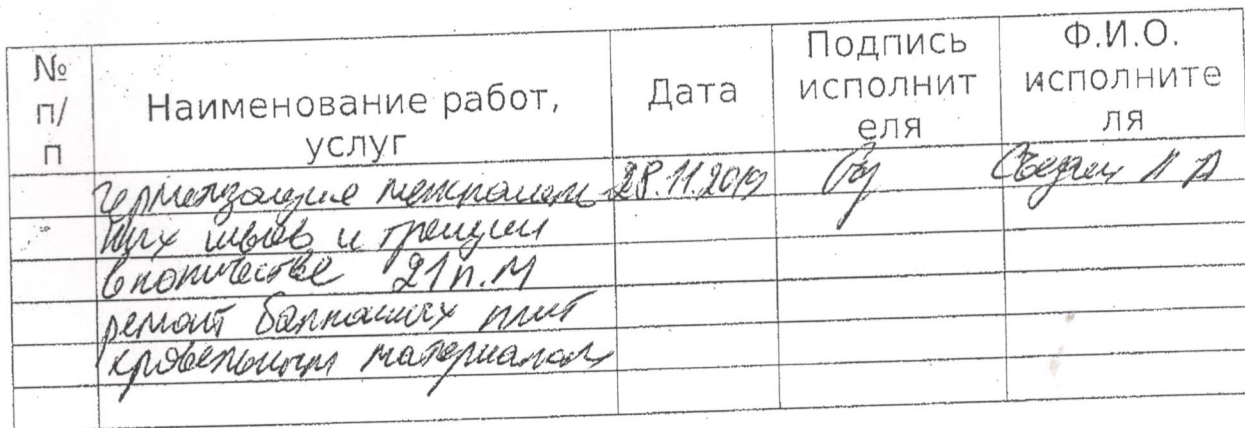 № п/п Наименование работ, услуг Дата Подпись исполнителя Ф.И.О. исполнителя
герметизация межпанель 28.11.2019
ных швов и трещин
в количестве 21 п.м
ремонт балконных плит
кровельным материалом